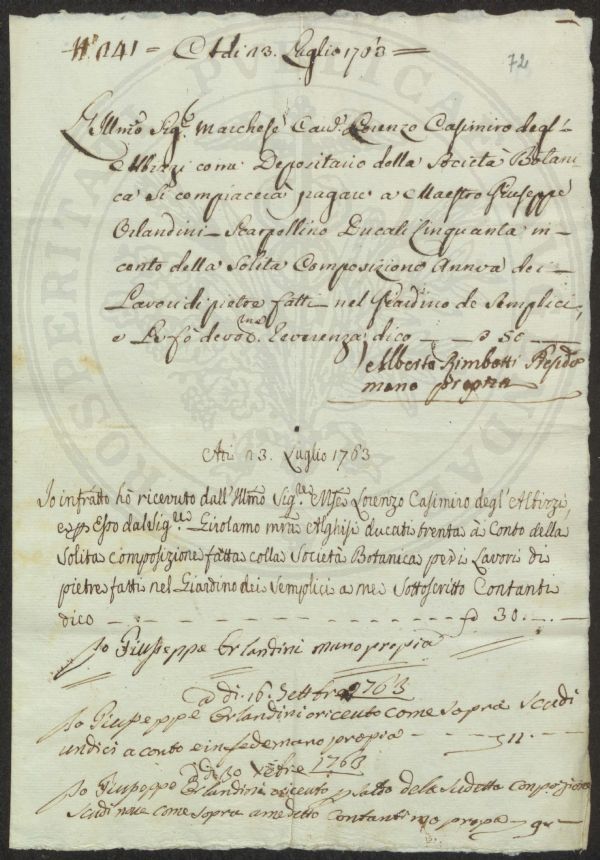 N° 141 = Adi 23. Luglio 1763 =
72
L'Illmo Sigr. Marchese Cavr. Lorenzo Casimiro degl'
Albizzi come Depositario della Società Botani
ca Si compiacerà pagare a Maestro Giuseppe
Orlandini Scarpellino Ducati Cinquanta in
conto della Solita Composizione Annua dei
Lavori di pietra fatti nel Giardino de Semplici,
e Le fò devotma. Reverenza dico — — 50 —
Alberto Rimbotti Presidte
mano propria
Adi 23. Luglio 1763
Io infratto hò ricevuto dall'Illmo Sigre Mse Lorenzo Casimiro degl'Albizzi,
e p Esso dal Sigre Girolamo mra Alghisi ducati trenta à Conto della
Solita composizione fatta colla Società Botanica per i Lavori di
pietre fatti nel Giardino dei Semplici a me Sottoscritto Contanti
dico — 30. —
Io Giuseppe Orlandini mano propia
Adi 16. Settbre 1763
Io Giuseppe Orlandini riceuto come sopra Scudi
undici a conto e in fede mano propia — 11. —
Adi 30 Xbre 1763
Io Giuseppe Orlandini riceuto p saldo dela sudetta conposizione
Scudi nove come sopra a me detto contanti mo propa — 9 —